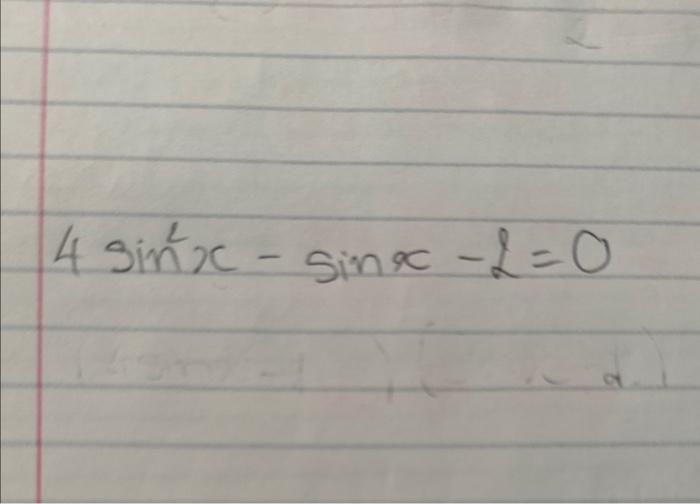 4 sin²x - sinx - 2 = 0